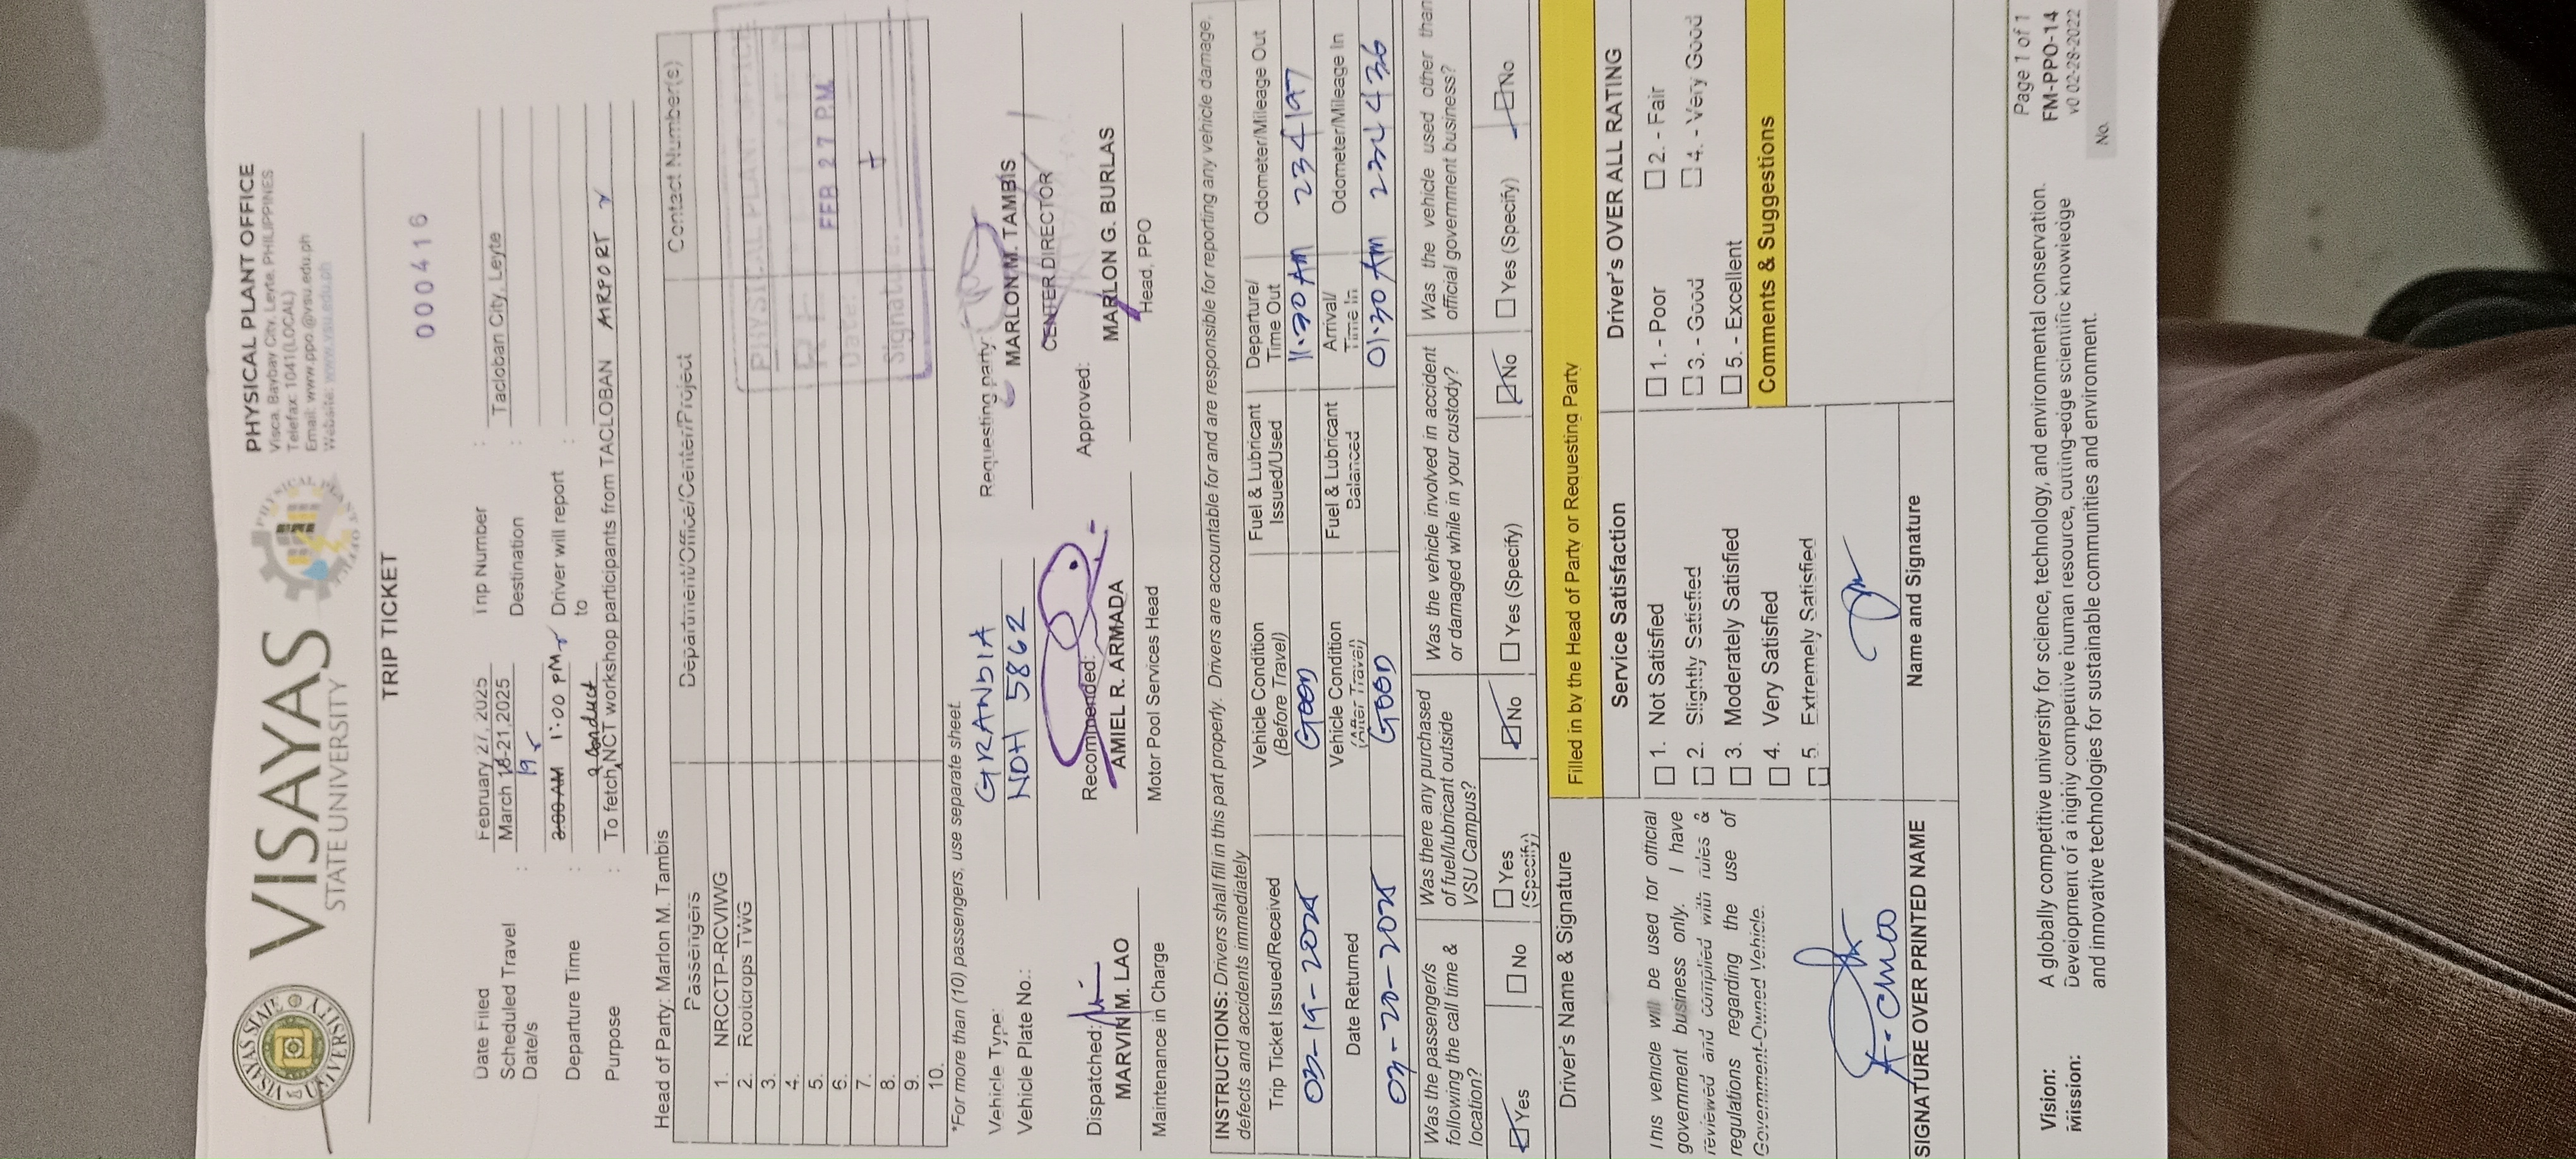 VISAYAS
STATE UNIVERSITY
PHYSICAL PLANT OFFICE
Visca, Baybay City, Leyte, PHILIPPINES
Telefax: 1041(LOCAL)
Email: www.ppo.@vsu.edu.ph
Website: www.vsu.edu.ph
TRIP TICKET
000416
Date Filed February 27, 2025 Trip Number :
Scheduled Travel Date/s : March 18-21,2025 Destination : Tacloban City, Leyte
19
Departure Time : 2:00 AM 1:00 PM Driver will report to :
Purpose : To fetch & Conduct NCT workshop participants from TACLOBAN AIRPORT
Head of Party: Marlon M. Tambis
Passengers Department/Office/Center/Project Contact Number(s)
1. NRCCTP-RCVIWG
2. Rootcrops TWG
3.
4.
5.
6.
7.
8.
9.
10.
PHYSICAL PLANT OFFICE
Date:
FEB 27 P.M.
Signature:
*For more than (10) passengers, use separate sheet.
Vehicle Type: GRANDIA Requesting party:
Vehicle Plate No.: NDH 5862 MARLON M. TAMBIS
CENTER DIRECTOR
Dispatched: Recommended: Approved:
MARVIN M. LAO AMIEL R. ARMADA MARLON G. BURLAS
Maintenance in Charge Motor Pool Services Head Head, PPO
INSTRUCTIONS: Drivers shall fill in this part properly. Drivers are accountable for and are responsible for reporting any vehicle damage,
defects and accidents immediately
Trip Ticket Issued/Received Vehicle Condition (Before Travel) Fuel & Lubricant Issued/Used Departure/ Time Out Odometer/Mileage Out
03-19-2025 GOOD 11:30 AM 234197
Date Returned Vehicle Condition (After Travel) Fuel & Lubricant Balanced Arrival/ Time In Odometer/Mileage In
03-20-2025 GOOD 01:30 AM 234436
Was the passenger/s following the call time & location? Was there any purchased of fuel/lubricant outside VSU Campus? Was the vehicle involved in accident or damaged while in your custody? Was the vehicle used other than official government business?
Yes No Yes (Specify) No Yes (Specify) No Yes (Specify) No
Driver's Name & Signature Filled in by the Head of Party or Requesting Party
Service Satisfaction Driver's OVER ALL RATING
This vehicle will be used for official
government business only. I have
reviewed and complied with rules &
regulations regarding the use of
Government-Owned Vehicle.
1. Not Satisfied
2. Slightly Satisfied
3. Moderately Satisfied
4. Very Satisfied
5. Extremely Satisfied
1. - Poor 2. - Fair
3. - Good 4. - Very Good
5. - Excellent
Comments & Suggestions
SIGNATURE OVER PRINTED NAME Name and Signature
Vision: A globally competitive university for science, technology, and environmental conservation.
Mission: Development of a highly competitive human resource, cutting-edge scientific knowledge
and innovative technologies for sustainable communities and environment.
Page 1 of 1
FM-PPO-14
v0 02-28-2022
No.